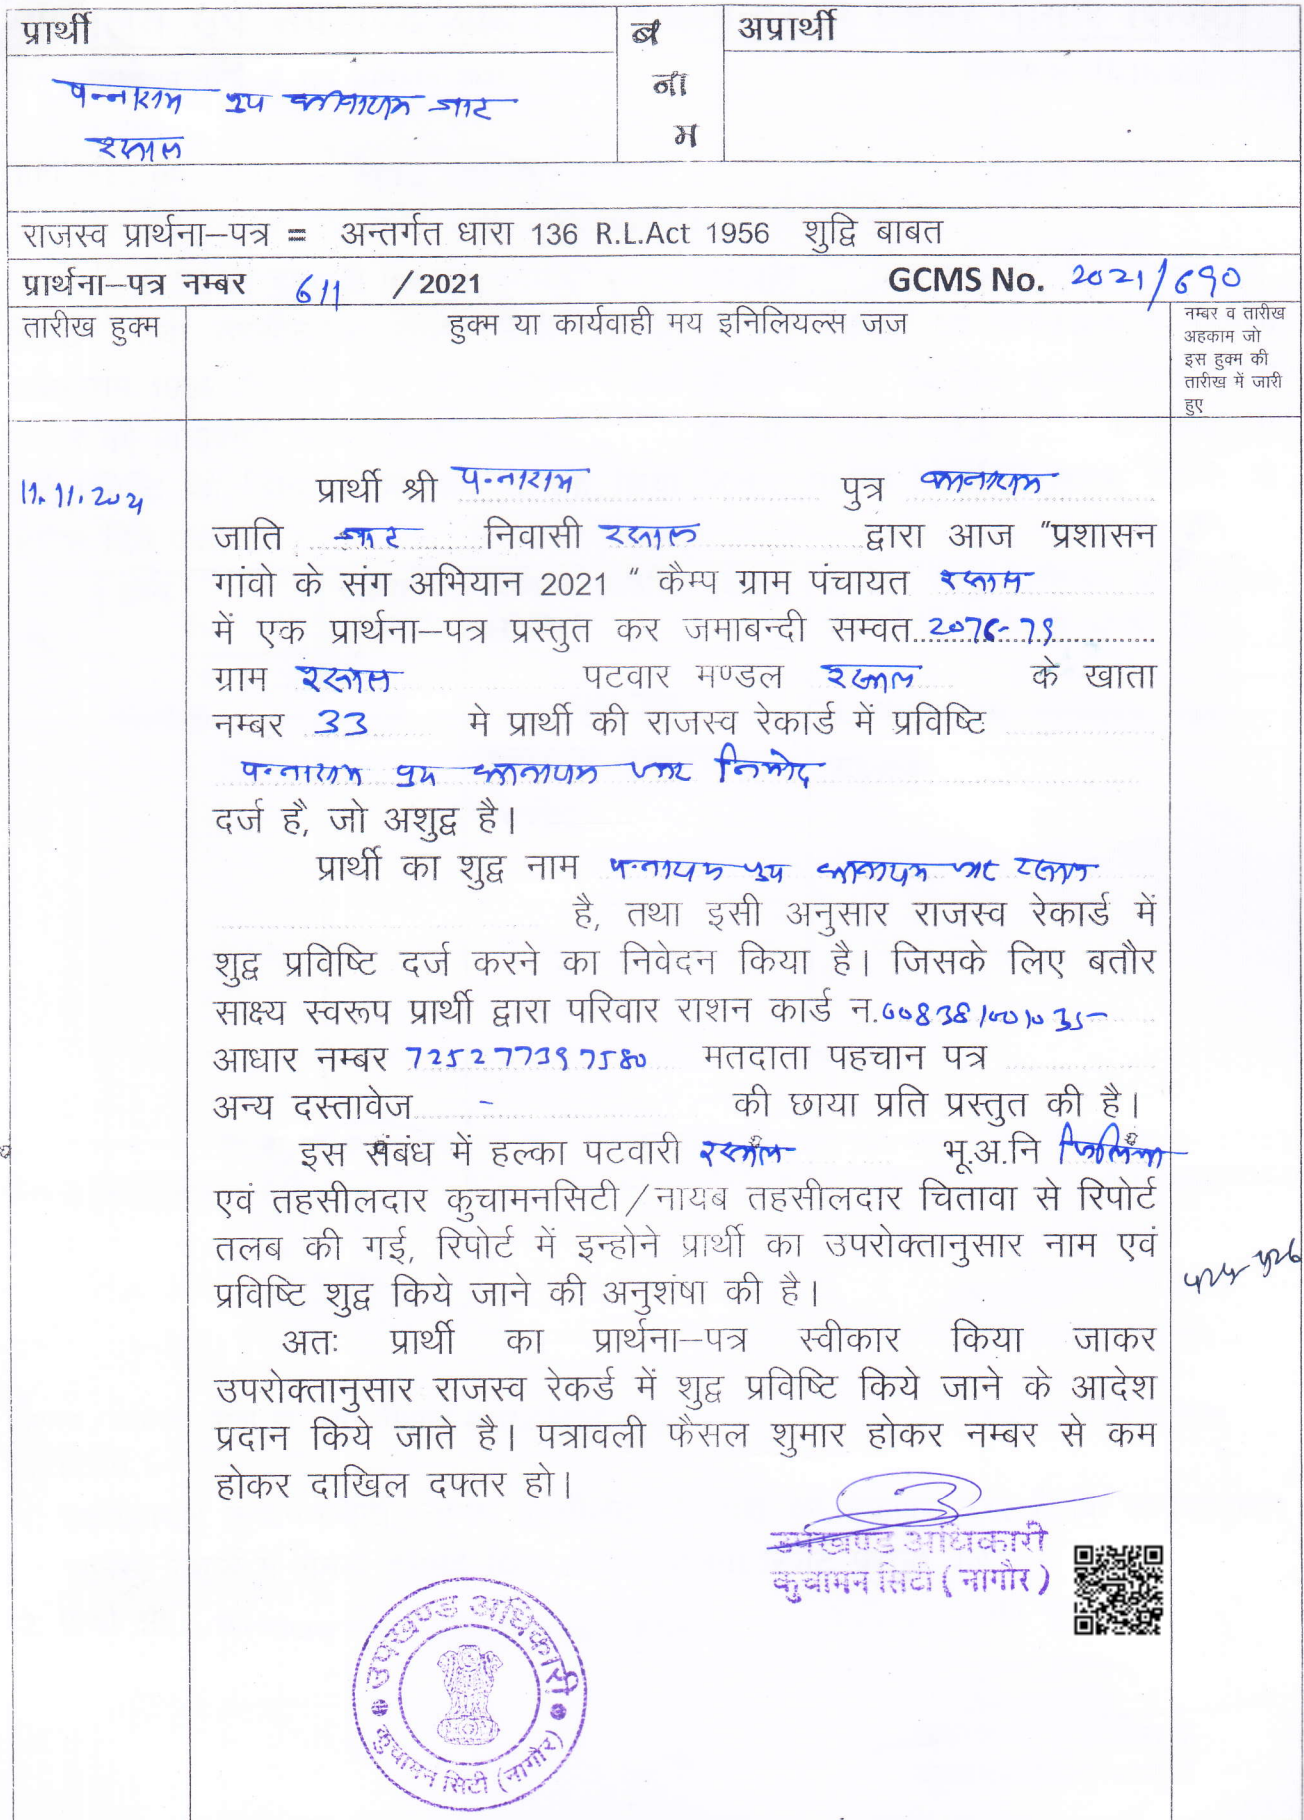 प्रार्थी
ब
ना
म
अप्रार्थी
पन्नाराम पुत्र कानाराम जाट
राजस्व प्रार्थना–पत्र = अन्तर्गत धारा 136 R.L.Act 1956 शुद्वि बाबत
प्रार्थना–पत्र नम्बर 611 / 2021 GCMS No. 2021/690
तारीख हुक्म
हुक्म या कार्यवाही मय इनिलियल्स जज
नम्बर व तारीख
अहकाम जो
इस हुक्म की
तारीख में जारी
हुए
11.11.2021
प्रार्थी श्री पन्नाराम पुत्र कानाराम
जाति जाट निवासी द्वारा आज "प्रशासन
गांवो के संग अभियान 2021 " कैम्प ग्राम पंचायत
में एक प्रार्थना–पत्र प्रस्तुत कर जमाबन्दी सम्वत 2076-79
ग्राम पटवार मण्डल के खाता
नम्बर 33 मे प्रार्थी की राजस्व रेकार्ड में प्रविष्टि
पन्नाराम पुत्र कानाराम जाट
दर्ज है, जो अशुद्व है।
प्रार्थी का शुद्व नाम पन्नाराम पुत्र कानाराम जाट
है, तथा इसी अनुसार राजस्व रेकार्ड में
शुद्व प्रविष्टि दर्ज करने का निवेदन किया है। जिसके लिए बतौर
साक्ष्य स्वरूप प्रार्थी द्वारा परिवार राशन कार्ड न.
आधार नम्बर 725277397580 मतदाता पहचान पत्र
अन्य दस्तावेज - की छाया प्रति प्रस्तुत की है।
इस संबंध में हल्का पटवारी भू.अ.नि
एवं तहसीलदार कुचामनसिटी/नायब तहसीलदार चितावा से रिपोर्ट
तलब की गई, रिपोर्ट में इन्होने प्रार्थी का उपरोक्तानुसार नाम एवं
प्रविष्टि शुद्व किये जाने की अनुशंषा की है।
अतः प्रार्थी का प्रार्थना–पत्र स्वीकार किया जाकर
उपरोक्तानुसार राजस्व रेकर्ड में शुद्व प्रविष्टि किये जाने के आदेश
प्रदान किये जाते है। पत्रावली फैसल शुमार होकर नम्बर से कम
होकर दाखिल दफ्तर हो।
उपखण्ड अधिकारी
कुचामन सिटी ( नागौर )
उपखण्ड अधिकारी
कुचामन सिटी (नागौर)